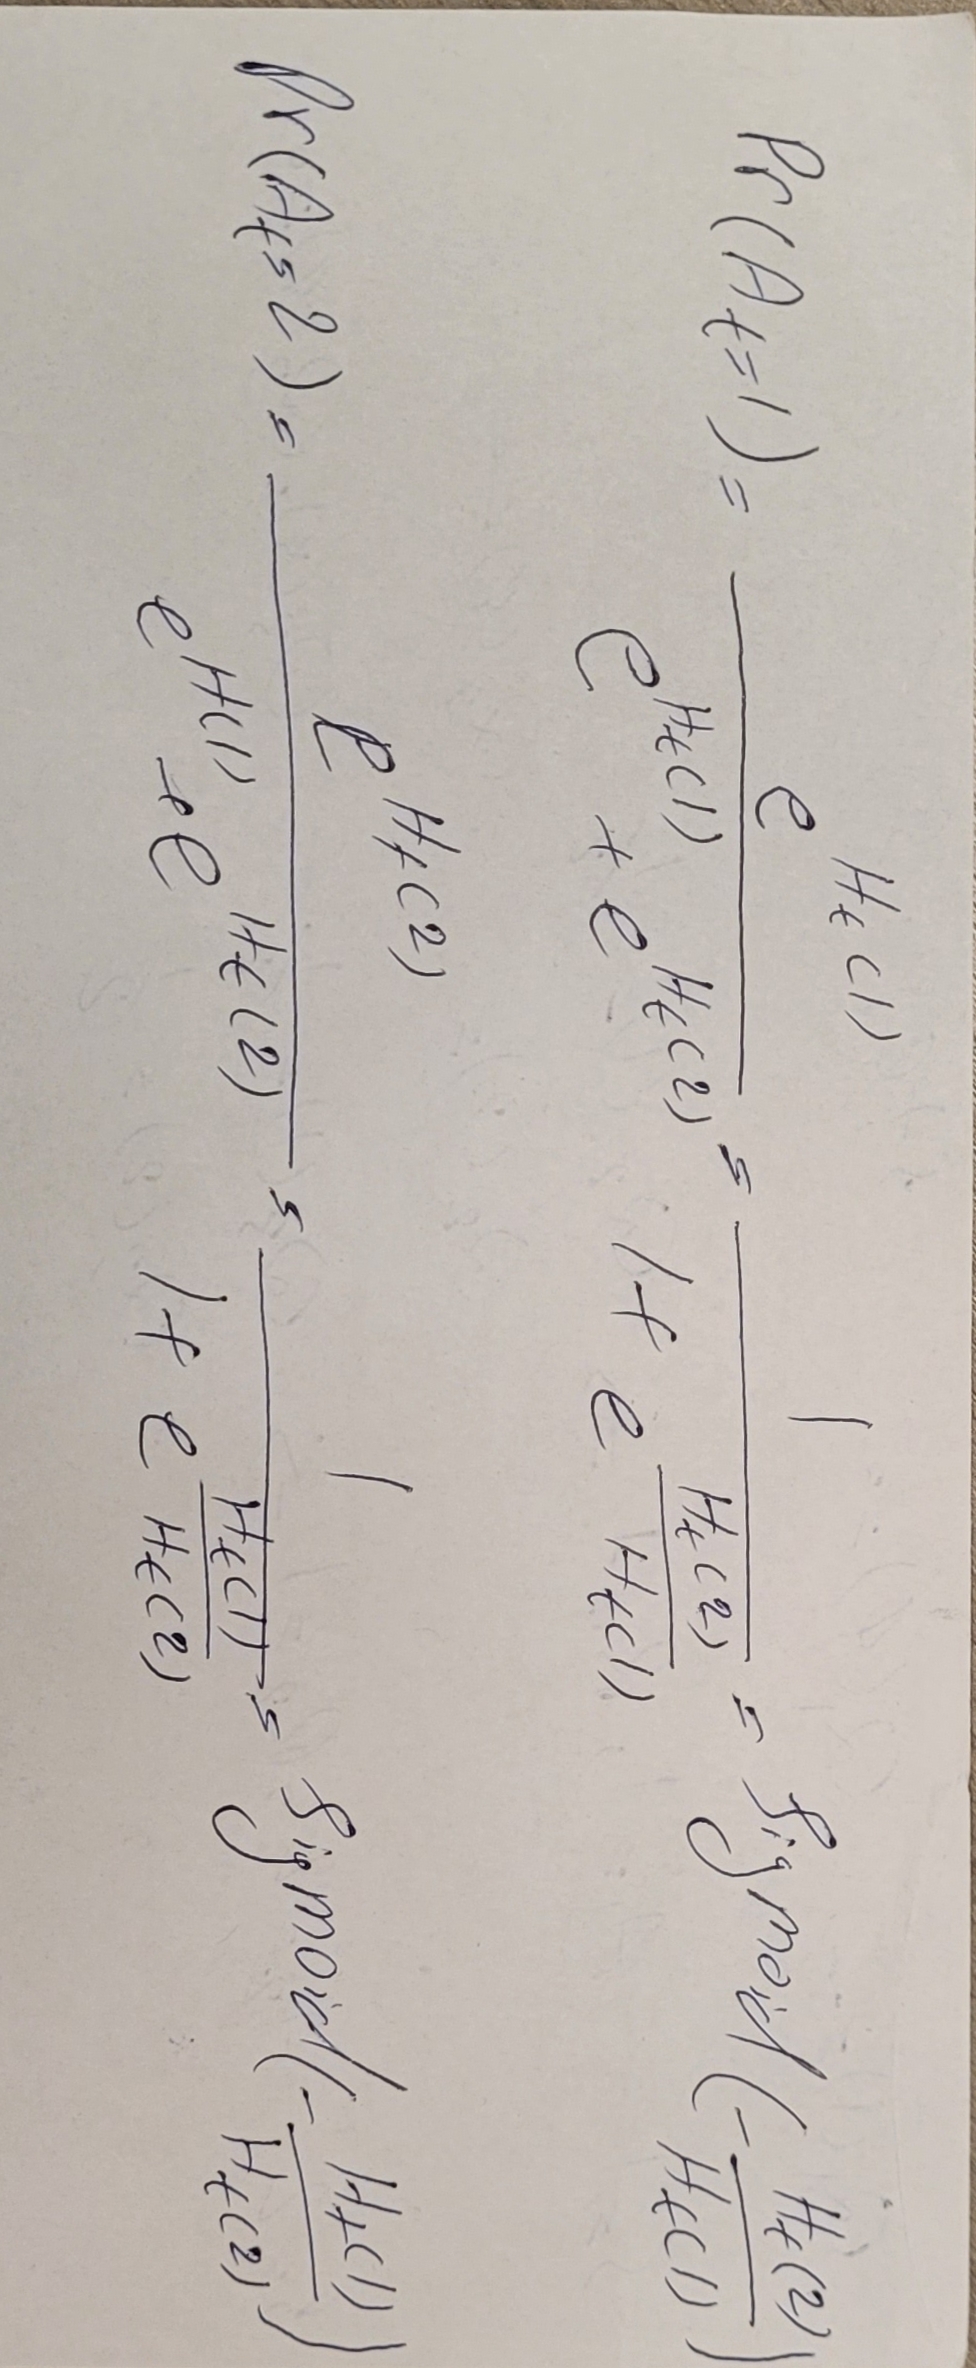 Pr(A_t=1) = \frac{e^{H_t(1)}}{e^{H_t(1)} + e^{H_t(2)}} = \frac{1}{1 + e^{\frac{H_t(2)}{H_t(1)}}} = Sigmoid(-\frac{H_t(2)}{H_t(1)})
Pr(A_t=2) = \frac{e^{H_t(2)}}{e^{H(1)} + e^{H_t(2)}} = \frac{1}{1 + e^{\frac{H_t(1)}{H_t(2)}}} = Sigmoid(-\frac{H_t(1)}{H_t(2)})